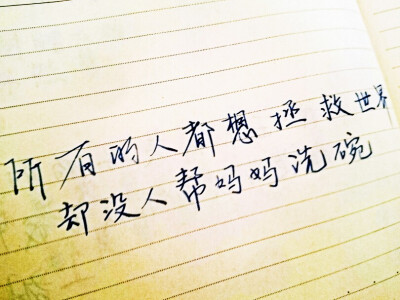 所有的人都想拯救世界
却没人帮妈妈洗碗